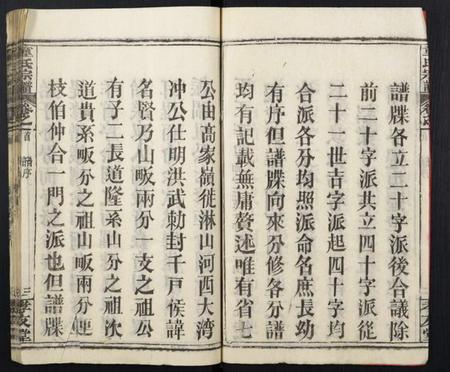 譜牒各立二十字派後合議除
前二十字派共立四十字派從
二十一世吉字派起四十字均
合派各分均照派命名庶長幼
有序但譜牒向來分修各分譜
均有記載無庸贅述唯有省七
公由高家嶺徙淋山河西大湾
冲公仕明洪武勅封千戸侯諱
名賢乃山畈兩分一支之祖公
有子二長道隆系山分之祖次
道貴系畈分之祖山畈兩分連
枝伯仲合一門之派也但譜牒
氏宗譜
譜序
三
孝友堂